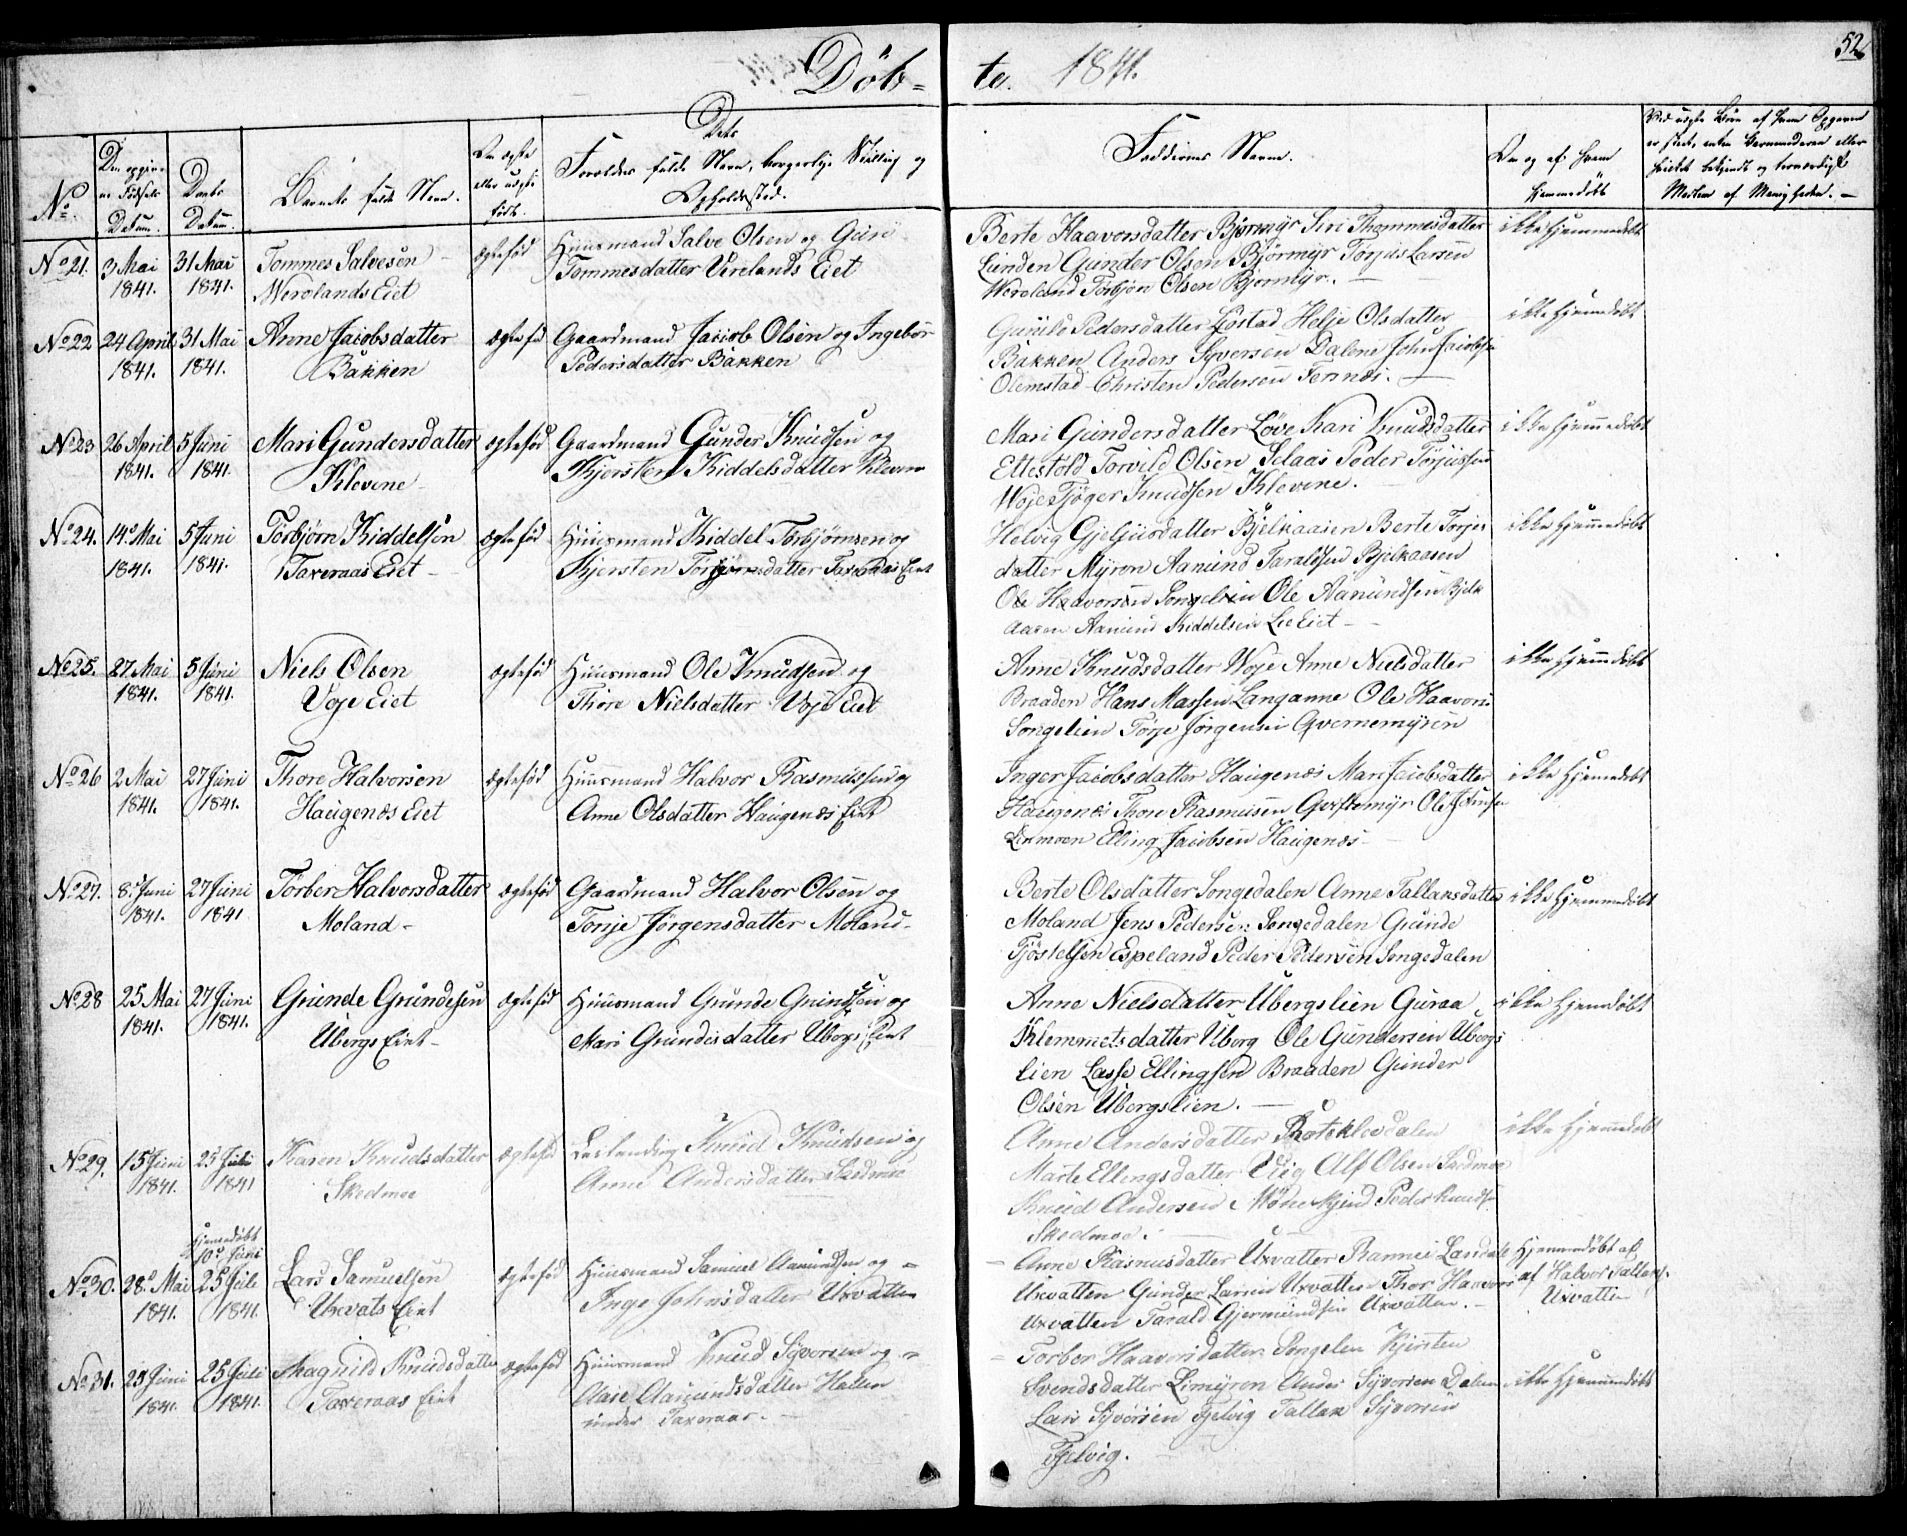 Döb=
te. 1841.
52
No.
Den opgivne Fødsels Datum.
Daabs Datum.
Barnets fulde Navn.
Om ægte eller uægte født.
Dets Forældres fulde Navn, borgerlige Stilling og Opholdssted.
Faddernes Navne.
Om og af hvem hjemmedøbt
No 21.
3 Mai 1841.
31 Mai 1841.
Tommes Salvesen
Werolands Eiet
ægtefød
Huusmand Salve Olsen og Guri
Tommesdatter Verelands Eiet
Berte Haavorsdatter Bjørmyr Siri Thommesdatter
Lunden Gunder Olsen Bjørmyr Torjus Larsen
Weroland Torbjøn Olsen Bjormyr.
ikke hjemmedøbt
No 22
24 April 1841.
31 Mai 1841.
Anne Jacobsdatter
Bakken
ægtefød
Gaardmand Jacob Olsen og Ingebor
Pedersdatter Bakken
Gunild Pedersdatter Løstad Helje Olsdatter
Bakken Anders Syversen Dalene John Jacobsen
Olimstad Christen Pedersen Ternnæs.
ikke hjemmedøbt
No 23
26 April 1841.
5 Juni 1841.
Mari Gundersdatter
Klevene
ægtefød
Gaardmand Gunder Knudsen og
Kjersten Kiddelsdatter Klevene
Mari Gundersdatter Løve Kari Knudsdatter
Ettestøld Torvild Olsen Selaas Peder Torjussen
Woje Tjøger Knudsen Klevene.
ikke hjemmedøbt
No 24.
14d Mai 1841.
5 Juni 1841.
Torbjørn Kiddelsen
Taxeraas Eiet
ægtefød
Huusmand Kiddel Torbjørnsen og
Kjersten Torjussdatter Taxeraas Eiet
Helvig Gjeljusdatter Bjelkaasen Berte Torjus
datter Myron Aamund Taraldsen Bjelkaasen
Ole Haavorsen Songelien Ole Aamundsen Bjelk
aasen Aamund Kiddelsen Lie Eiet
ikke hjemmedøbt
No 25.
27. Mai 1841.
5 Juni 1841.
Niels Olsen
Voje Eiet
ægtefød
Huusmand Ole Knudsen og
Thore Nielsdatter Voje Eiet
Anne Knudsdatter Woje Anne Nielsdatter
Braaden Hans Massen Langanne Ole Haavors
Songelien Torje Jørgensen Qvernemyren
ikke hjemmedøbt
No 26
2 Mai 1841.
27 Juni 1841.
Thore Halvorsen
Haugenæs Eiet
ægtefød
Huusmand Halvor Rasmussen og
Anne Olsdatter Haugenæs Eiet
Inger Jacobsdatter Haugenæs Mari Jacobsdatter
Haugenæs Thore Rasmusen Qviftemyr Ole Johnsen
Linmoen Elling Jacobsen Haugenæs
ikke hjemmedøbt
No 27.
8. Juni 1841.
27 Juni 1841
Torber Halvorsdatter
Moland
ægtefød
Gaardmand Halvor Olsen og
Tonje Jørgensdatter Moland
Berte Olsdatter Songedalen Anne Tallaksdatter
Moland Jens Pedersen Songedalen Gunde
Tjøstelsen Espeland Peder Pedersen Songedalen
ikke hjemmedøbt
No 28
25 Mai 1841.
27 Juni 1841.
Gunde Gundesen
Ubergs Eiet
ægtefød
Huusmand Gunde Gundsen og
Mari Gundesdatter Ubergs Eiet
Anne Nielsdatter Ubergslien Guraa
Klemmetsdatter Uberg Ole Gundersen Ubergs
lien Lasse Ellingsen Braaden Gunder
Olsen Ubergslien.
ikke hjemmedøbt
No 29.
15 Juni 1841.
25 Juli 1841
Karen Knudsdatter
Skedmoe
ægtefød
Leilending Knud Knudsen og
Anne Andersdatter Skedmoe
Anne Andersdatter Rotekledalen
Marte Ellingsdatter Vlig Alf Olsen Skedmoe
Knud Andersen Mønekjend Peder Knudsen
Skedmoe.
ikke hjemmedøbt
No 30.
28d Mai 1841.
Hjemmedøbt 10d Juni
25 Juli 1841.
Lars Samuelsen
Uxvats Eiet
ægtefød
Huusmand Samuel Aamundsen og
Inge Johnsdatter Uxvatten
Anne Rasmusdatter Uxvatten Rannei Landale
Uxvatten Gunder Larsen Uxvatten Thor Haavors
Uxvatten Tarald Gjermundsen Uxvatten.
Hjemmedøbt af
af Halvor Tallaks.
Uxvatten
No 31.
23 Juni 1841.
25 Juli 1841.
Magnild Knudsdatter
Taxeraas Eiet
ægtefød
Huusmand Knud Syversen og
Aase Aamundsdatter Hatten
under Taxeraas.
Torber Haavorsdatter Songelen Kjersten
Svendsdatter Limyren Anders Syversen Dalene
Lars Syversen Tjelvig Tallak Syversen
Tjelvig.
ikke hjemmedøbt